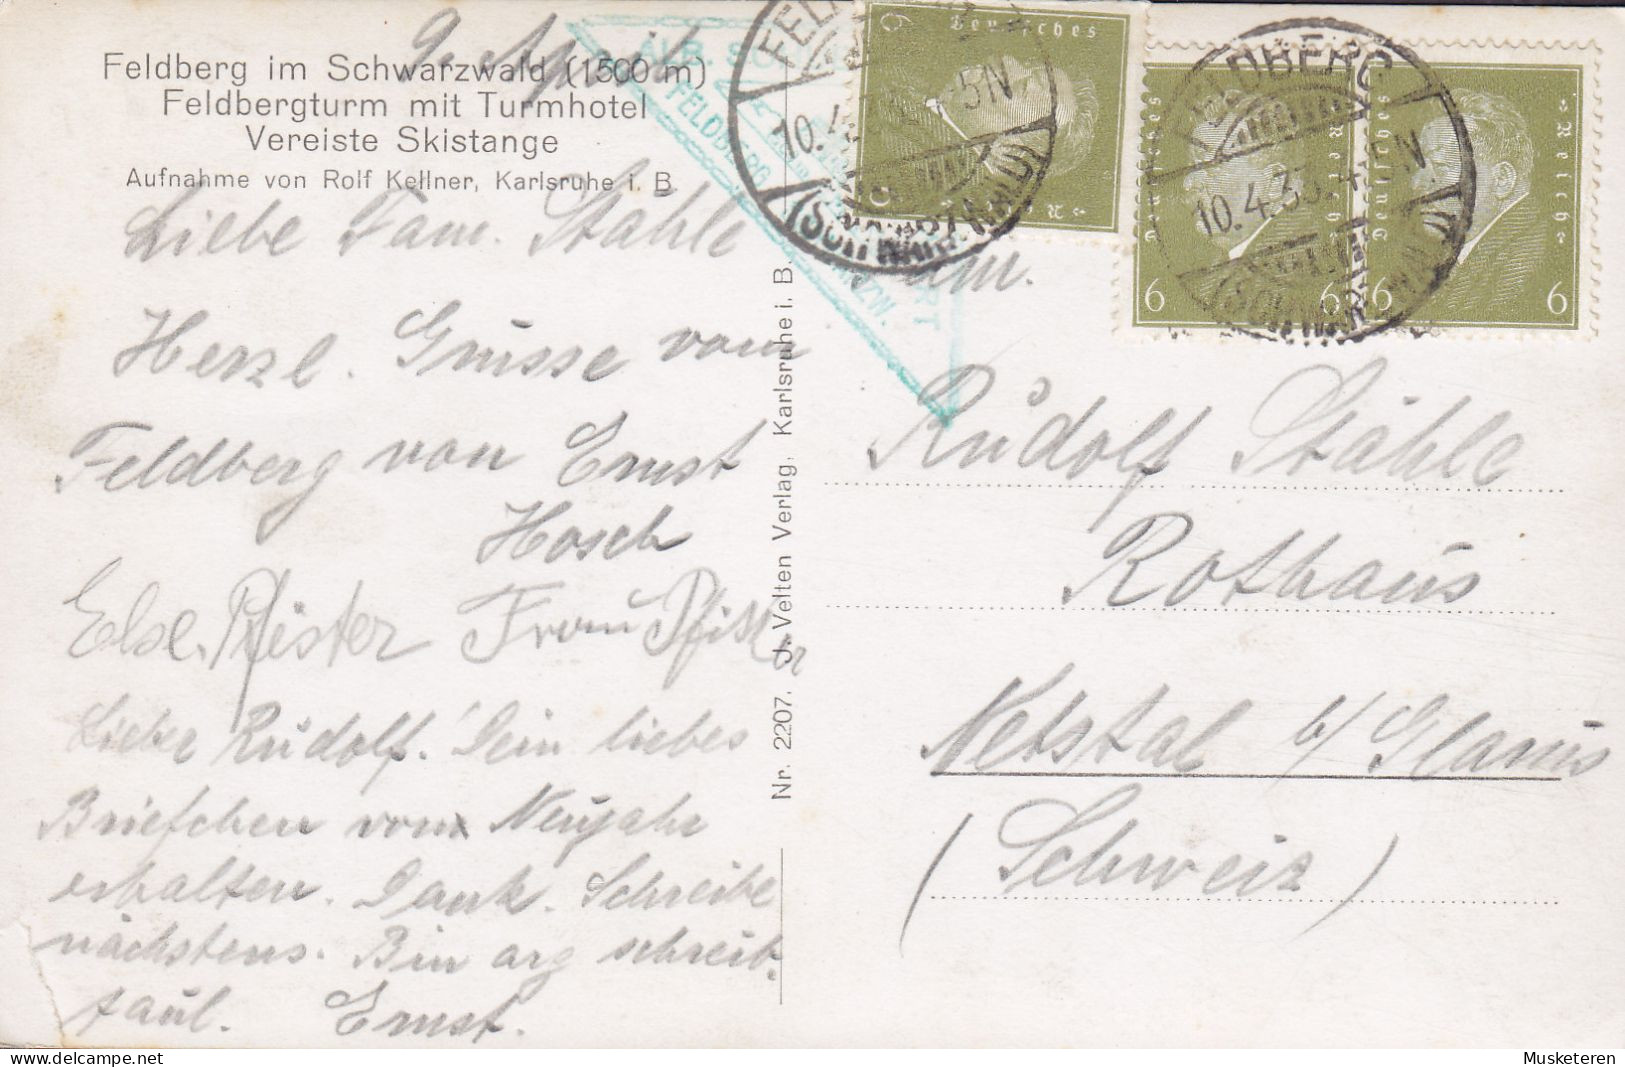 9. April
Feldberg im Schwarzwald (1500 m)
Feldbergturm mit Turmhotel
Vereiste Skistange
Aufnahme von Rolf Kellner, Karlsruhe i. B
Liebe Fam. Stähle
Herzl. Grüsse vom
Feldberg von Ernst
Hosch
Else Pfister Frau Pfister
Lieber Rudolf! Dein liebes
Briefchen vom Neujahr
erhalten. Dank. Schreibe
nächstens. Bin arg schreib-
faul. Ernst.
Nr. 2207. J. Velten Verlag, Karlsruhe i. B.
FELDBERG
Deutsches Reich
6
10.4.33
FELDBERG
(SCHWARZWALD)
Deutsches Reich
6
Deutsches Reich
6 6
FELDBERG
10.4.33
(SCHWARZWALD)
Fam.
Rudolf Stähle
Rothaus
Netstal b/ Glarus
(Schweiz)
Musketeren